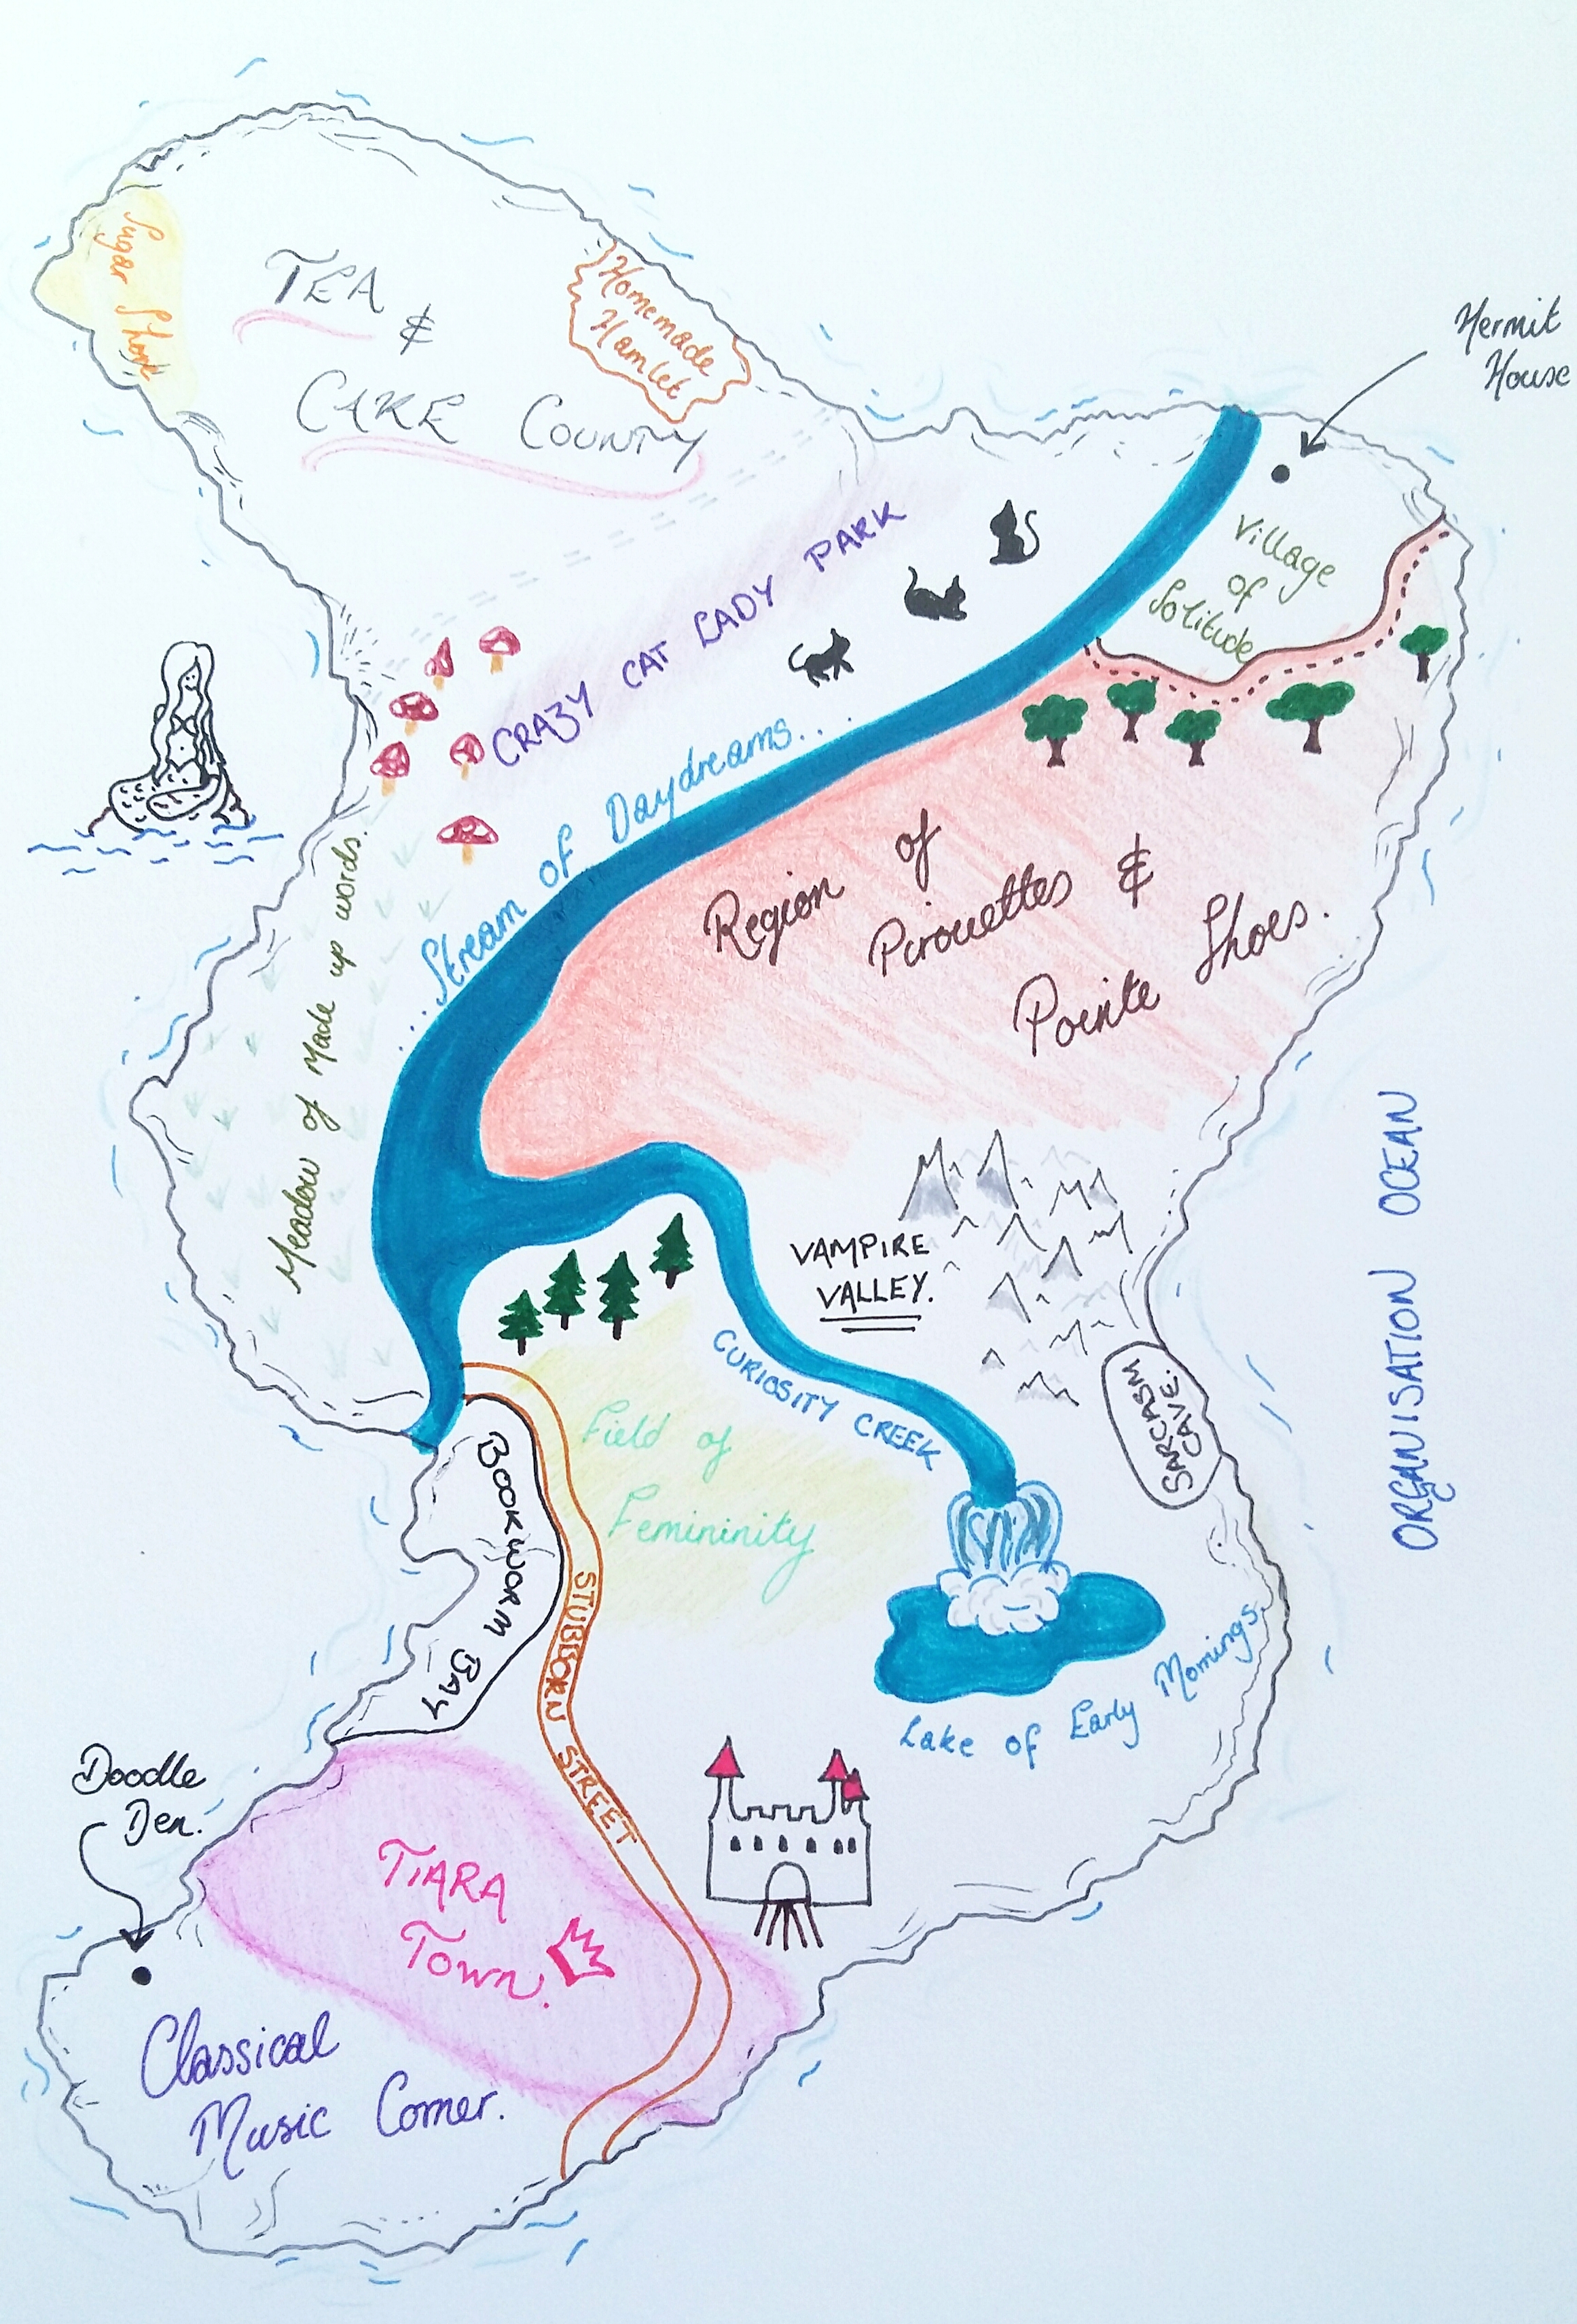 Sugar Shore
TEA
&
CAKE COUNTY
Homemade
Hamlet
Hermit
House
Village
of
Solitude
CRAZY CAT LADY PARK
...Stream of Daydreams...
Meadow of Made up words.
Region of
Pirouettes &
Pointe Shoes.
VAMPIRE
VALLEY.
CURIOSITY CREEK
SARCASM
CAVE.
ORGANISATION OCEAN
Field of
Femininity
BOOKWORM BAY
STUBBORN STREET
Lake of Early Mornings.
Doodle
Den.
TIARA
Town.
Classical
Music Corner.